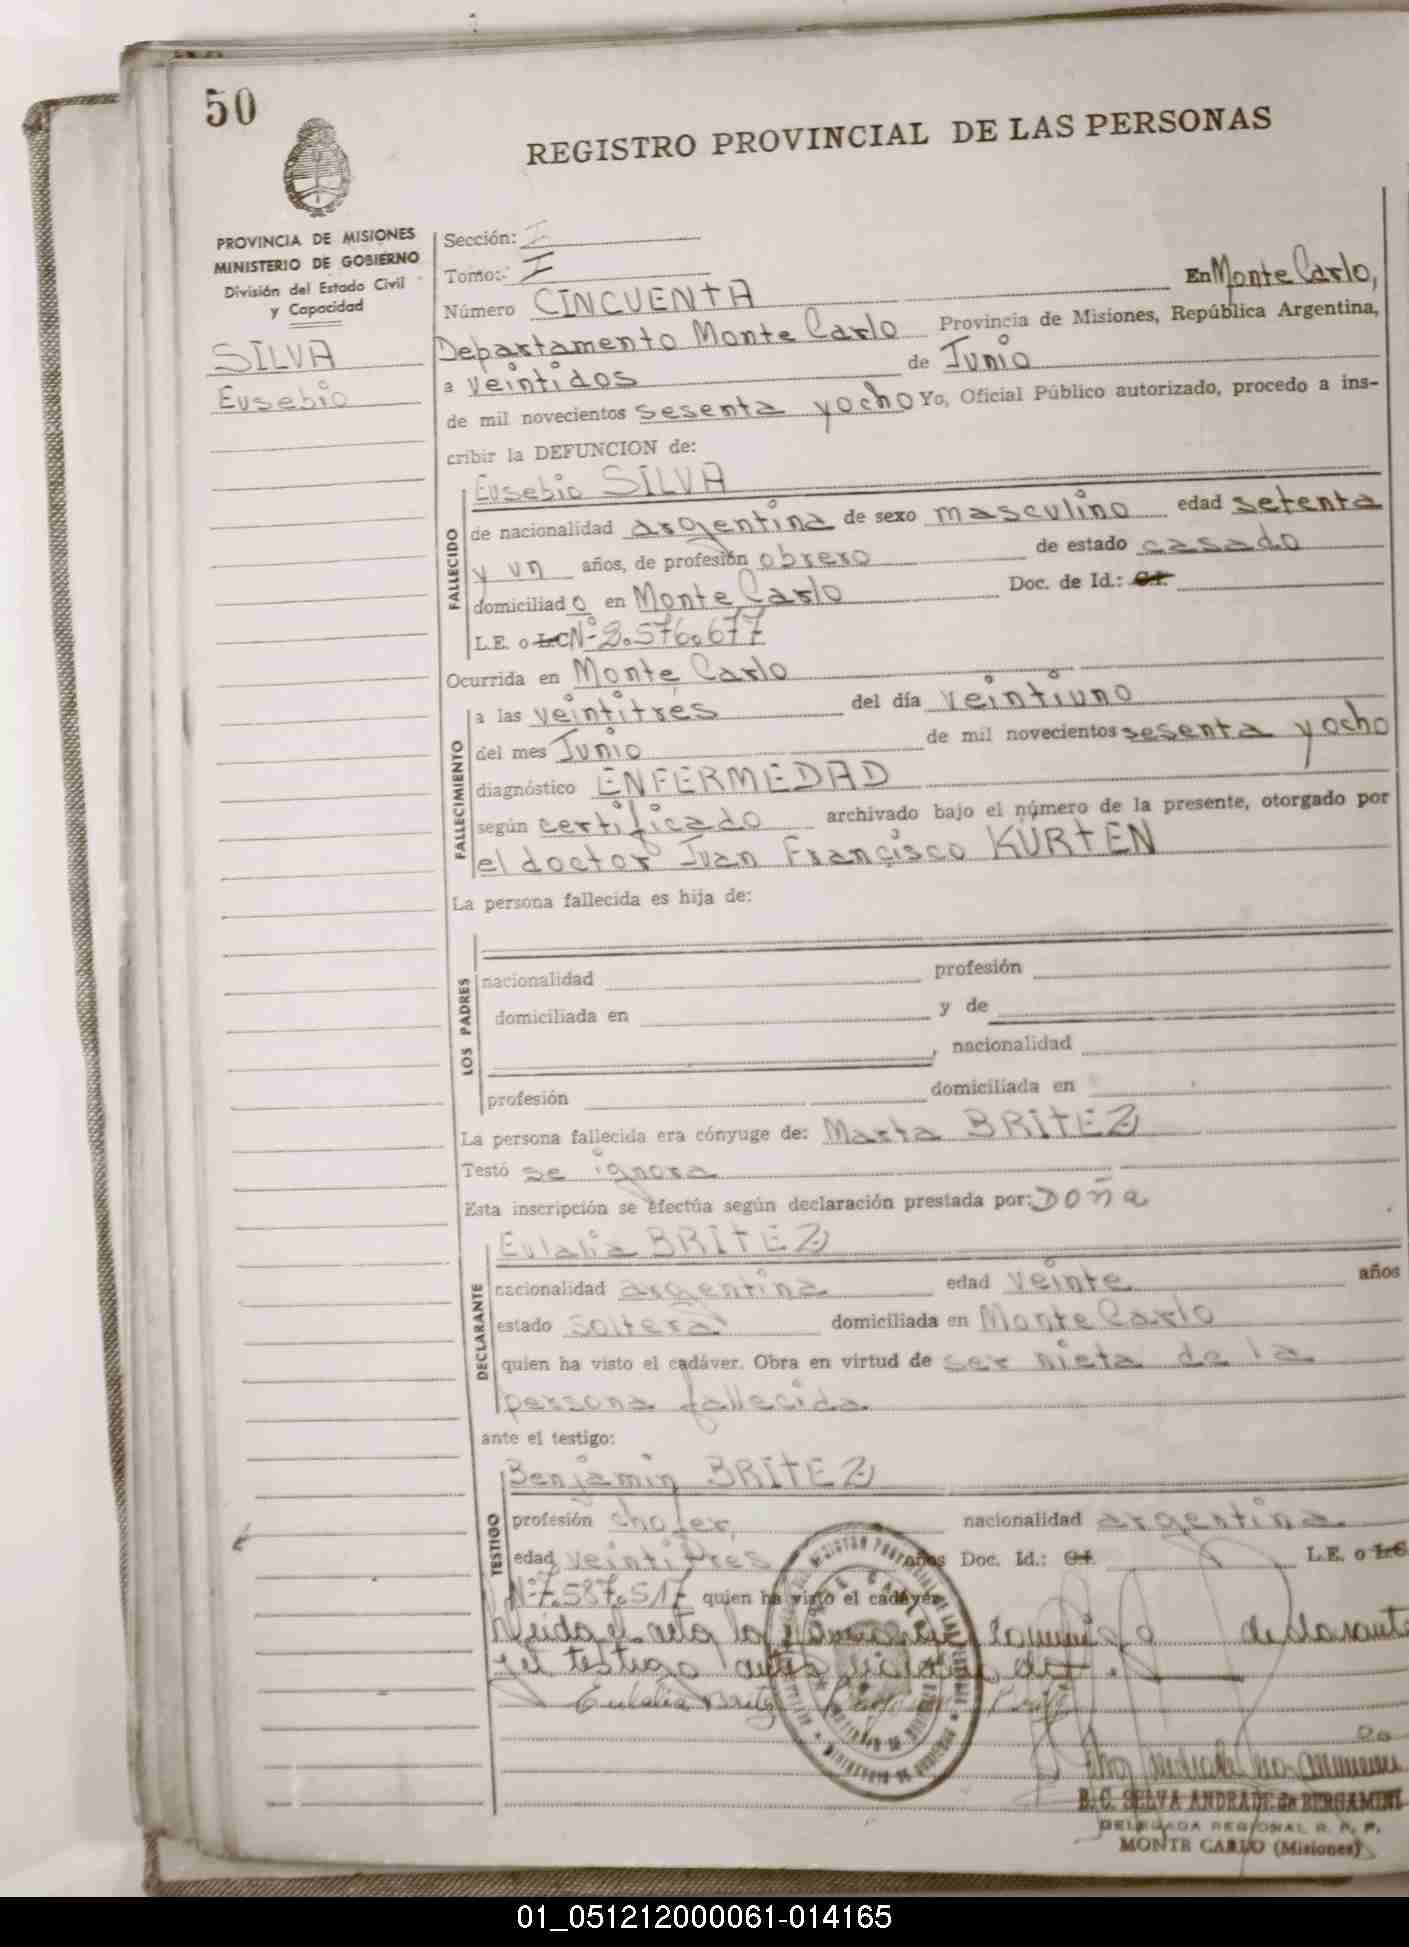 50
REGISTRO PROVINCIAL DE LAS PERSONAS
PROVINCIA DE MISIONES
MINISTERIO DE GOBIERNO
División del Estado Civil
y Capacidad
SILVA
Eusebio
Sección: I
Tomo: I
Número CINCUENTA En Monte Carlo,
Departamento Monte Carlo Provincia de Misiones, República Argentina,
a veintidos de Junio
de mil novecientos sesenta y ocho Yo, Oficial Público autorizado, procedo a ins-
cribir la DEFUNCION de:
FALLECIDO
Eusebio SILVA
de nacionalidad argentina de sexo masculino edad setenta
y un años, de profesión obrero de estado casado
domiciliado en Monte Carlo Doc. de Id.: C.I.
L.E. o LC Nº 2.576.677
Ocurrida en Monte Carlo
FALLECIMIENTO
a las veintitrés del día veintiuno
del mes Junio de mil novecientos sesenta y ocho
diagnóstico ENFERMEDAD
según certificado archivado bajo el número de la presente, otorgado por
el doctor Juan Francisco KURTEN
La persona fallecida es hija de:
LOS PADRES
nacionalidad profesión
domiciliada en y de
, nacionalidad
profesión domiciliada en
La persona fallecida era cónyuge de: Marta BRITEZ
Testó se ignora
Esta inscripción se efectúa según declaración prestada por: Doña
DECLARANTE
Eulalia BRITEZ
nacionalidad argentina edad veinte años
estado soltera domiciliada en Monte Carlo
quien ha visto el cadáver. Obra en virtud de ser nieta de la
persona fallecida
ante el testigo:
TESTIGO
Benjamin BRITEZ
profesión chofer, nacionalidad argentina
edad veintitres años Doc. Id.: C.I. L.E. o LC
Nº 7.587.517 quien ha visto el cadáver
Leida el acta la declarante
y el testigo
Eulalia Britez
B. C. SELVA ANDRADE de BERGAMINI
DELEGADA REGIONAL R. P. P.
MONTE CARLO (Misiones)
01_051212000061-014165